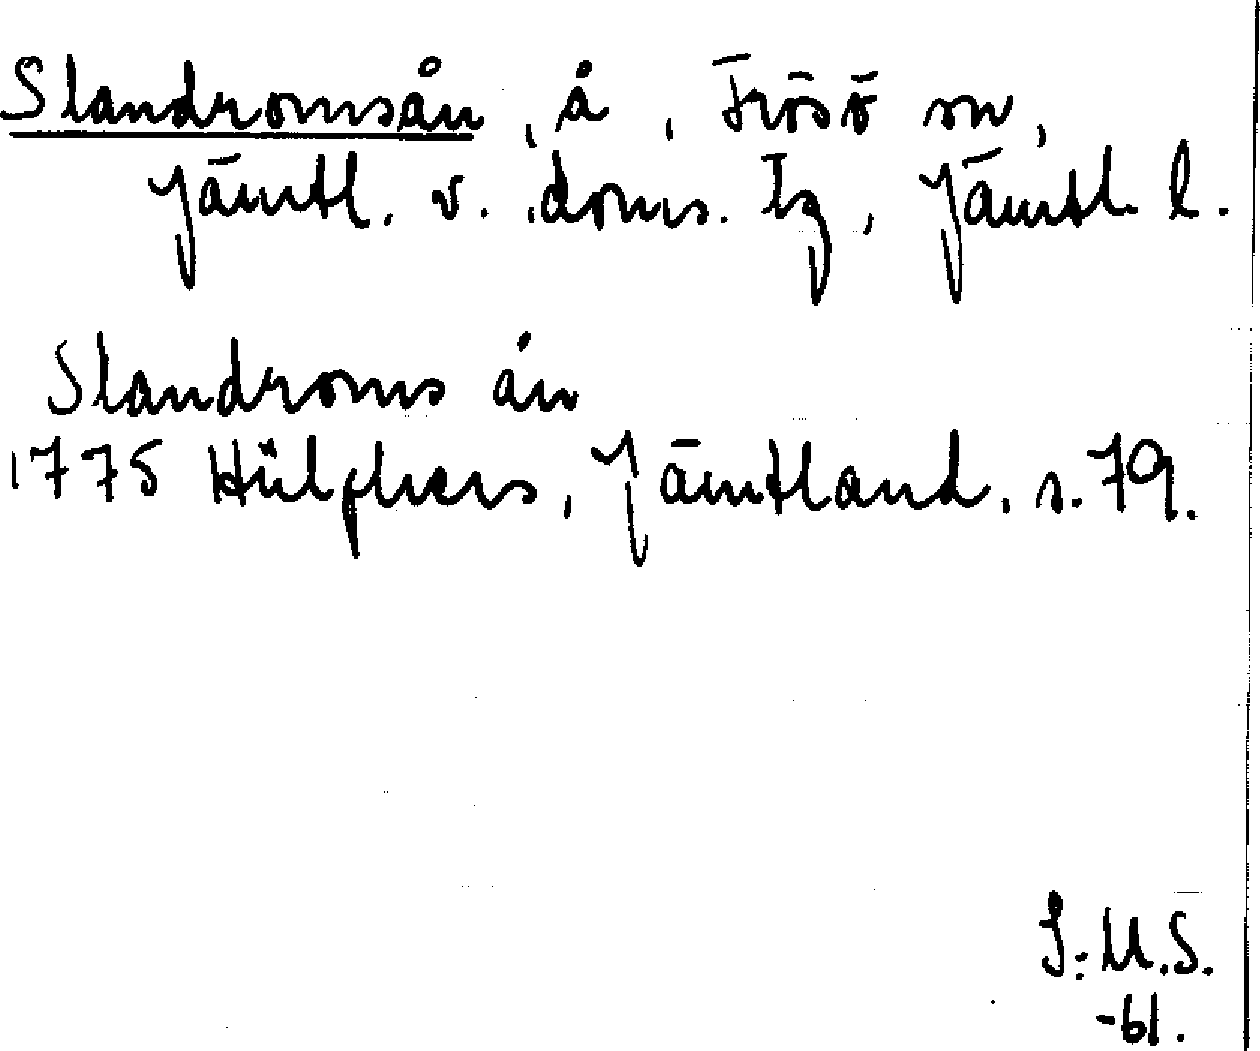 Slandromsån, å, Frösö sn,
Jämtl. v. doms. tg, Jämtl. l.
Slandroms ån
1775 Hülphers, Jämtland. s. 79.
S: M.S.
-61.